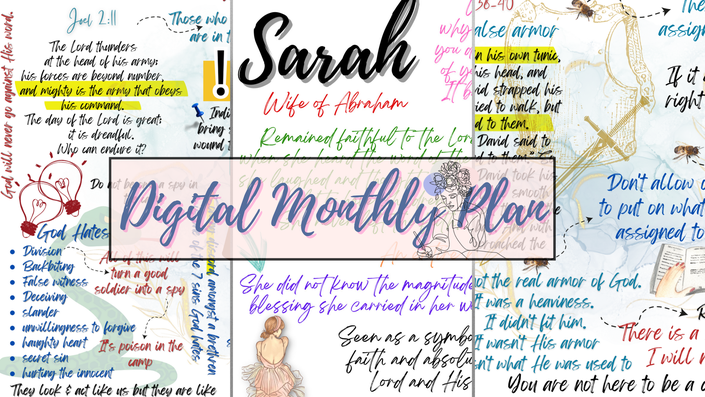 Joel 2:11
God will never go against His word.
The Lord thunders
at the head of his army;
his forces are beyond number,
and mighty is the army that obeys
his command.
The day of the Lord is great;
it is dreadful.
Who can endure it?
Those who
are in t
!
Indi
bring
wound
Do
a spy in
God Hates
Division
Backbiting
False witness
Deceiving
slander
unwillingness to forgive
haughty heart
secret sin
hurting the innocent
All of this will
turn a good
soldier into a spy
It's poison in the
camp
amongst a brethren
the 7 sins God hates
They look & act like us but they are like
Sarah
Wife of Abraham
Why
you a
of y
It b
Remained faithful to the Lor
when she heard the word
she laughed and
Digital Monthly Plan
She did not know the magnitude
blessing she carried in her w
Seen as a symbo
faith and absolu
Lord and His
36-40
alse armor
n his own tunic,
his head, and
id strapped his
ied to walk, but
d to them.
David said to
them."
David took his
smooth
And with
proached the
The
assign
If it
right
Don't allow o
to put on what
assigned to
ot the real armor of God.
t was a heaviness.
It didn't fit him.
wasn't His armor
n't what He was used to
There is a
I will n
You are not here to be a c